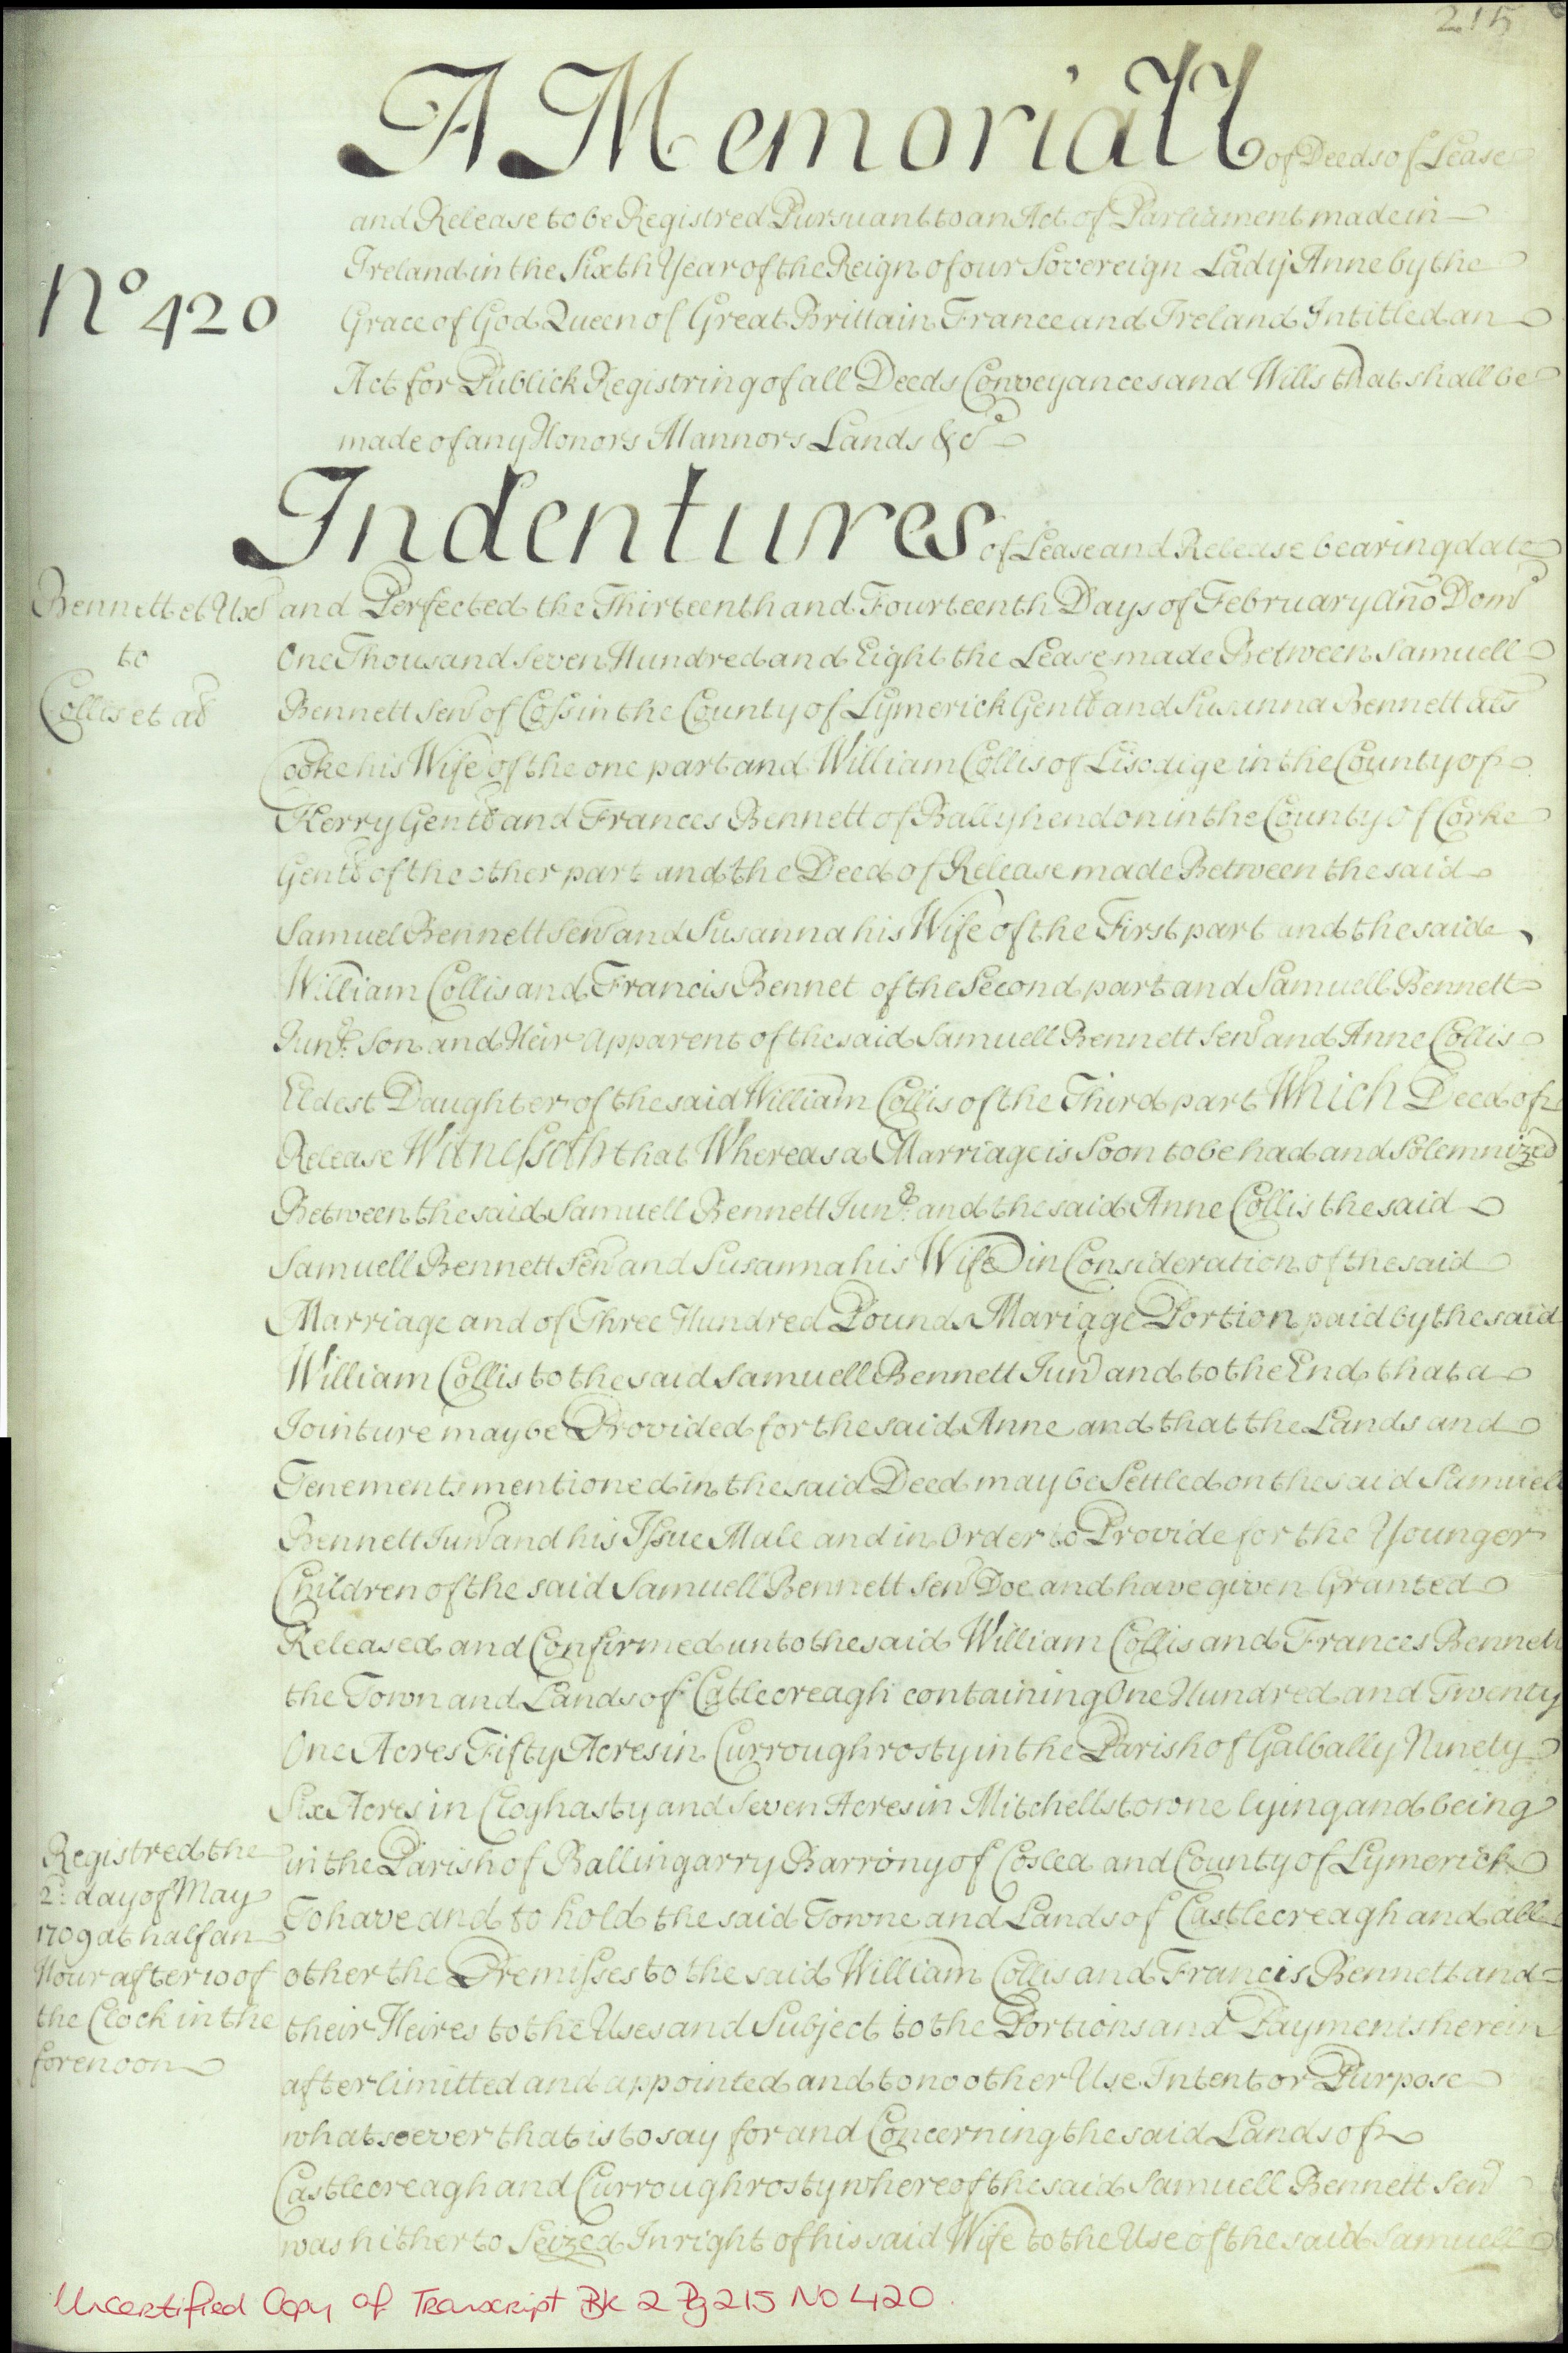 215
A Memoriall of Deeds of Lease
and Release to be Registred Pursuant to an Act of Parliament made in
Ireland in the Sixth Year of the Reign of our Sovereign Lady Anne by the
Nº 420
Grace of God Queen of Great Brittain France and Ireland Intitled an
Act for Publick Registring of all Deeds Conveyances and Wills that shall be
made of any Honors Mannors Lands &c
Indentures of Lease and Release bearing date
Bennett et Ux
to
Collis et al
and Perfected the Thirteenth and Fourteenth Days of February Año Dom
One Thousand Seven Hundred and Eight the Lease made Between Samuell
Bennett Senr of Coss in the County of Lymerick Gentl and Susanna Bennett als
Cooke his Wife of the one part and William Collis of Lisodige in the County of
Kerry Gentl and Frances Bennett of Ballyhendon in the County of Corke
Gentl of the other part and the Deed of Release made Between the said
Samuel Bennett Senr and Susanna his Wife of the First part and the saide
William Collis and Francis Bennet of the Second part and Samuell Bennett
Junr. Son and Heir Apparent of the said Samuell Bennett Senr and Anne Collis
Eldest Daughter of the said William Collis of the Third part Which Deed of
Release Witnesseth that Whereas a Marriage is Soon to be had and Solemnized
Between the said Samuell Bennett Junr. and the said Anne Collis the said
Samuell Bennett Senr and Susanna his Wife in Consideration of the said
Marriage and of Three Hundred Pounds Mariage Portion paid by the said
William Collis to the said Samuell Bennett Junr and to the End that a
Jointure may be Provided for the said Anne and that the Lands and
Tenements mentioned in the said Deed may be Settled on the said Samuell
Bennett Junr and his Issue Male and in Order to Provide for the Younger
Children of the said Samuell Bennett Senr Doe and have given Granted
Released and Confirmed unto the said William Collis and Frances Bennett
the Town and Lands of Catlecreagh containing One Hundred and Twenty
One Acres Fifty Acres in Curroughrosty in the Parish of Galbally Ninety
Six Acres in Cloghasty and Seven Acres in Mitchellstowne lying and being
in the Parish of Ballingarry Barrony of Coslea and County of Lymerick
To have and to hold the said Towne and Lands of Castlecreagh and all
other the Premisses to the said William Collis and Francis Bennett and
their Heires to the Uses and Subject to the Portions and Payments herein
after limitted and appointed and to no other Use Intent or Purpose
whatsoever that is to say for and Concerning the said Lands of
Castlecreagh and Curroughrosty whereof the said Samuell Bennett Senr
was hitherto Seized In right of his said Wife to the Use of the said Samuell
Registred the
2d. day of May
1709 at half an
Hour after 10 of
the Clock in the
forenoon
Uncertified Copy of Transcript Bk 2 Pg 215 No 420.